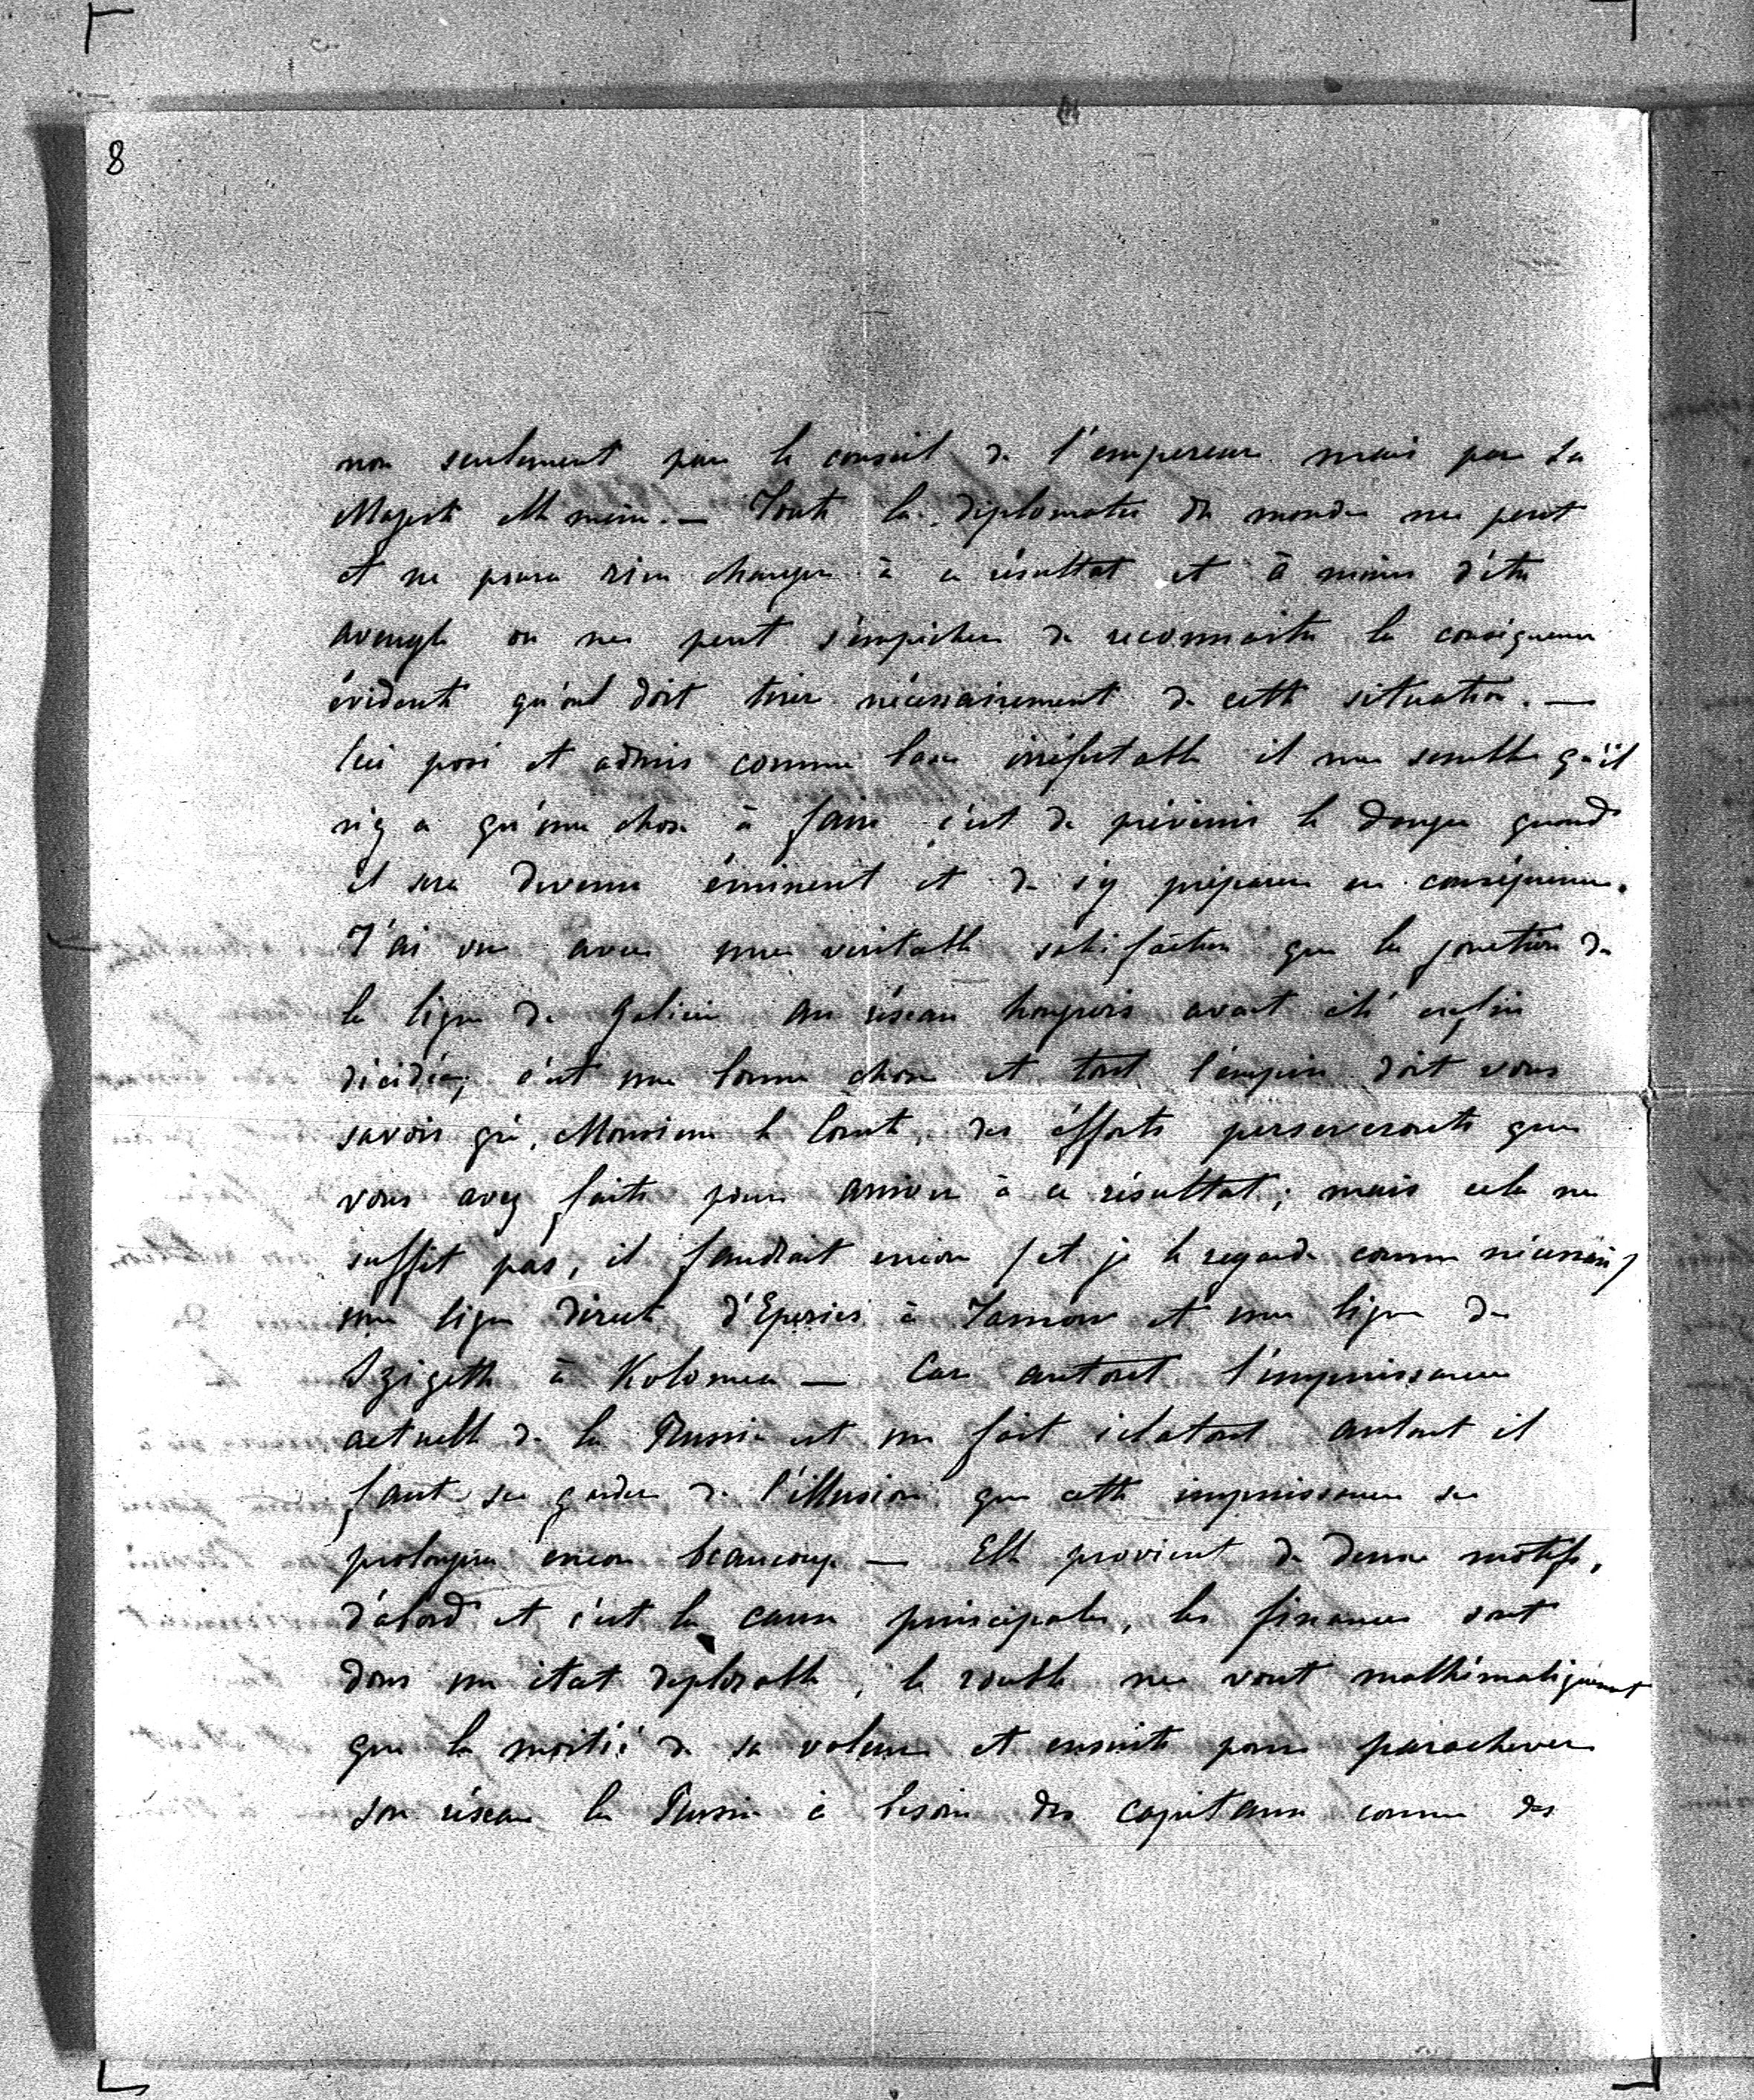 8
non seulement par le conseil de l'empereur mais par Sa
Majesté elle même. — Toute la diplomatie du monde ne peut
et ne poura rien changer à ce résultat et à moins d'être
aveugle on ne peut s'empêcher de reconnaitre la conséquence
évidente qu'on doit tirer nécessairement de cette situation. —
Ceci posé et admis comme base irréfutable il me semble qu'il
n'y a qu'une chose à faire c'est de prévenir le danger quand
il sera devenu éminent et de s'y préparer en conséquence.
J'ai vu avec une veritable satisfaction que la jonction de
la ligne de Galicie au réseau hongrois avait été enfin
décidée; c'est une bonne chose et tout l'empire doit vous
savoir gré, Monsieur le Comte, des éfforts perseverants que
vous avez faits pour arriver à ce résultat; mais cela ne
suffit pas, il faudrait encore / et je le regarde comme nécessaire /
une ligne directe d'Eperies à Tarnow et une ligne de
Szigeth à Kolomea — Car autant l'impuissance
actuelle de la Russie est un fait éclatant autant il
faut se garder de l'illusion que cette impuissance se
prolongera encore beaucoup — Elle provient de deux motifs,
d'abord et c'est la cause principale, les finances sont
dans un état deplorable, le rouble ne vaut mathématiquement
que la moitié de sa valeur et ensuite pour parachever
son réseau la Russie à besoin des capitaux comme des